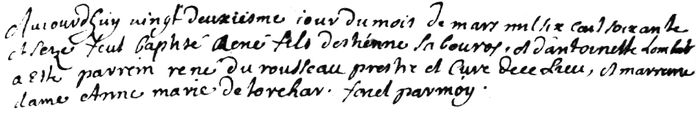 Aujourdhuy vingt deuxiesme jour du mois de mars mil six cent soixante
et seze feut baptisé René fils destienne la bouros, et dantoinette Lombut
a esté parrein rené du rousseau prestre et Curé de ce Lieu, et marrenne
dame Anne marie de torchar. faict par moy.